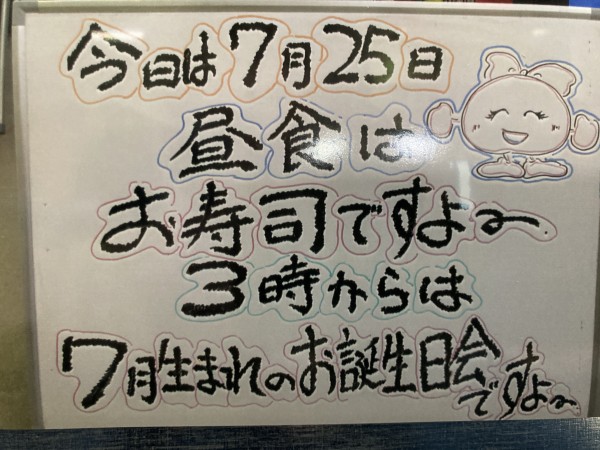 今日は7月25日
昼食は
お寿司ですよ～
3時からは
7月生まれのお誕生日会ですよ～